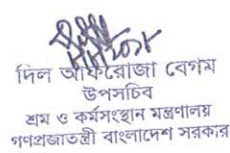 দিল আফরোজা বেগম
উপসচিব
শ্রম ও কর্মসংস্থান মন্ত্রণালয়
গণপ্রজাতন্ত্রী বাংলাদেশ সরকার